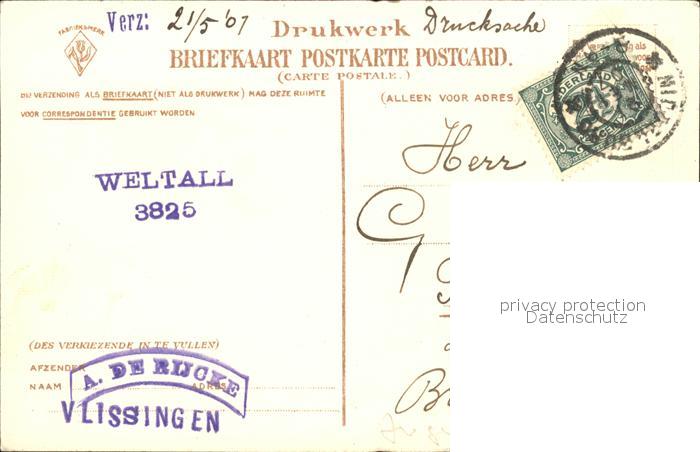 FABRIEKSMERK
Verz: 21/5 '07
Drukwerk Drucksache
BRIEFKAART POSTKARTE POSTCARD.
(CARTE POSTALE.)
BIJ VERZENDING ALS BRIEFKAART (NIET ALS DRUKWERK) MAG DEZE RUIMTE
VOOR CORRESPONDENTIE GEBRUIKT WORDEN
(ALLEEN VOOR ADRES)
NEDERLAND
Herr
WELTALL
3825
G
privacy protection
Datenschutz
(DES VERKIEZENDE IN TE VULLEN)
AFZENDER
NAAM ADRES
A. DE RIJCKE
VLISSINGEN